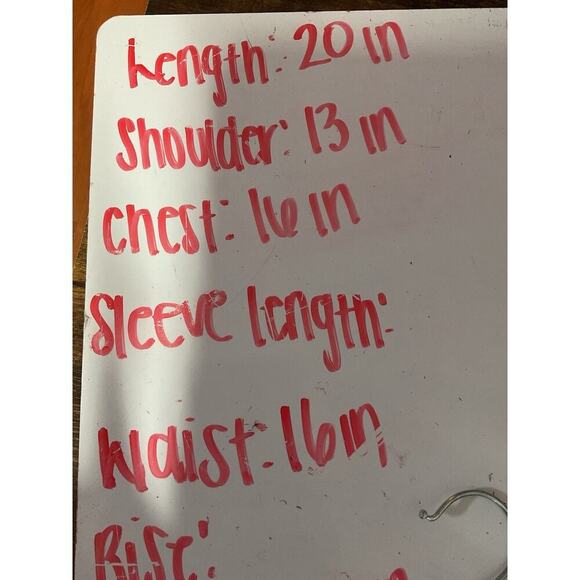 Length: 20 in
Shoulder: 13 in
Chest: 16 in
Sleeve length:
Waist: 16 in
Rise: